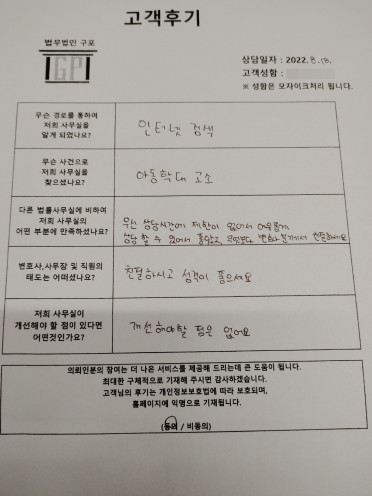 고객후기
법무법인 구포
GP
상담일자 : 2022. 8. 18.
고객성함 :
※ 성함은 모자이크처리 됩니다.
무슨 경로를 통하여
저희 사무실을
알게 되었나요?
인터넷 검색
무슨 사건으로
저희 사무실을
찾으셨나요?
아동학대 고소
다른 법률사무실에 비하여
저희 사무실의
어떤 부분에 만족하셨나요?
우선 상담시간에 제한이 없어서 여유롭게
상담할 수 있어서 좋았고, 무엇보다 변호사분께서 친절하세요
변호사,사무장 및 직원의
태도는 어떠셨나요?
친절하시고 성격이 좋으셔요
저희 사무실이
개선해야 할 점이 있다면
어떤것인가요?
개선해야할 점은 없어요
의뢰인분의 참여는 더 나은 서비스를 제공해 드리는데 큰 도움이 됩니다.
최대한 구체적으로 기재해 주시면 감사하겠습니다.
고객님의 후기는 개인정보보호법에 따라 보호되며,
홈페이지에 익명으로 기재됩니다.
(동의 / 비동의)